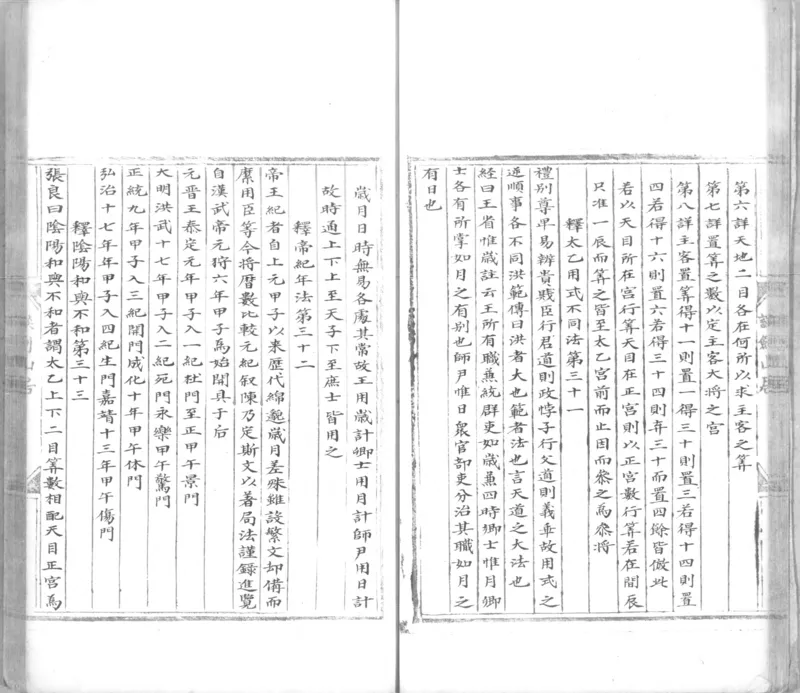 第六詳天地二目各在何所以求主客之筭
第七詳置筭之數以定主客大將之宫
第八詳主客置筭得十一則置一得三十則置三若得十四則置
四若得十六則置六若得三十四則弃三十而置四餘皆倣此
若以天目所在宫行筭天目在正宫則以正宫數行筭若在間辰
只准一辰而筭之皆至太乙宫前而止因而叅之為叅將
釋太乙用式不同法第三十一
禮别尊卑易辨貴賤臣行君道則政悖子行父道則義乖故用式之
逆順事各不同洪範傳曰洪者大也範者法也言天道之大法也
經曰王省惟歲註云王所有職無統群吏如歲無四時卿士惟月卿
士各有所掌如月之有别也師尹惟日衆官部吏分治其職如月之
有日也
歲月日時無易各處其常故王用歲計卿士用月計師尹用日計
故時通上下上至天子下至庶士皆用之
釋帝紀年法第三十二
帝王紀者自上元甲子以来歷代綿邈歲月差殊雖設繁文却備而
縻用臣等今將曆數比較元紀叙陳乃定斯文以著局法謹録進覽
自漢武帝元狩六年甲子為始開具于后
元晋王泰定元年甲子入一紀杜門至正甲午景門
大明洪武十七年甲子入二紀死門永樂甲午驚門
正統九年甲子入三紀開門成化十年甲午休門
弘治十七年年甲子入四紀生門嘉靖十三年甲午傷門
釋陰陽和與不和第三十三
張良曰陰陽和與不和者謂太乙上下二目筭數相配天目正宫為